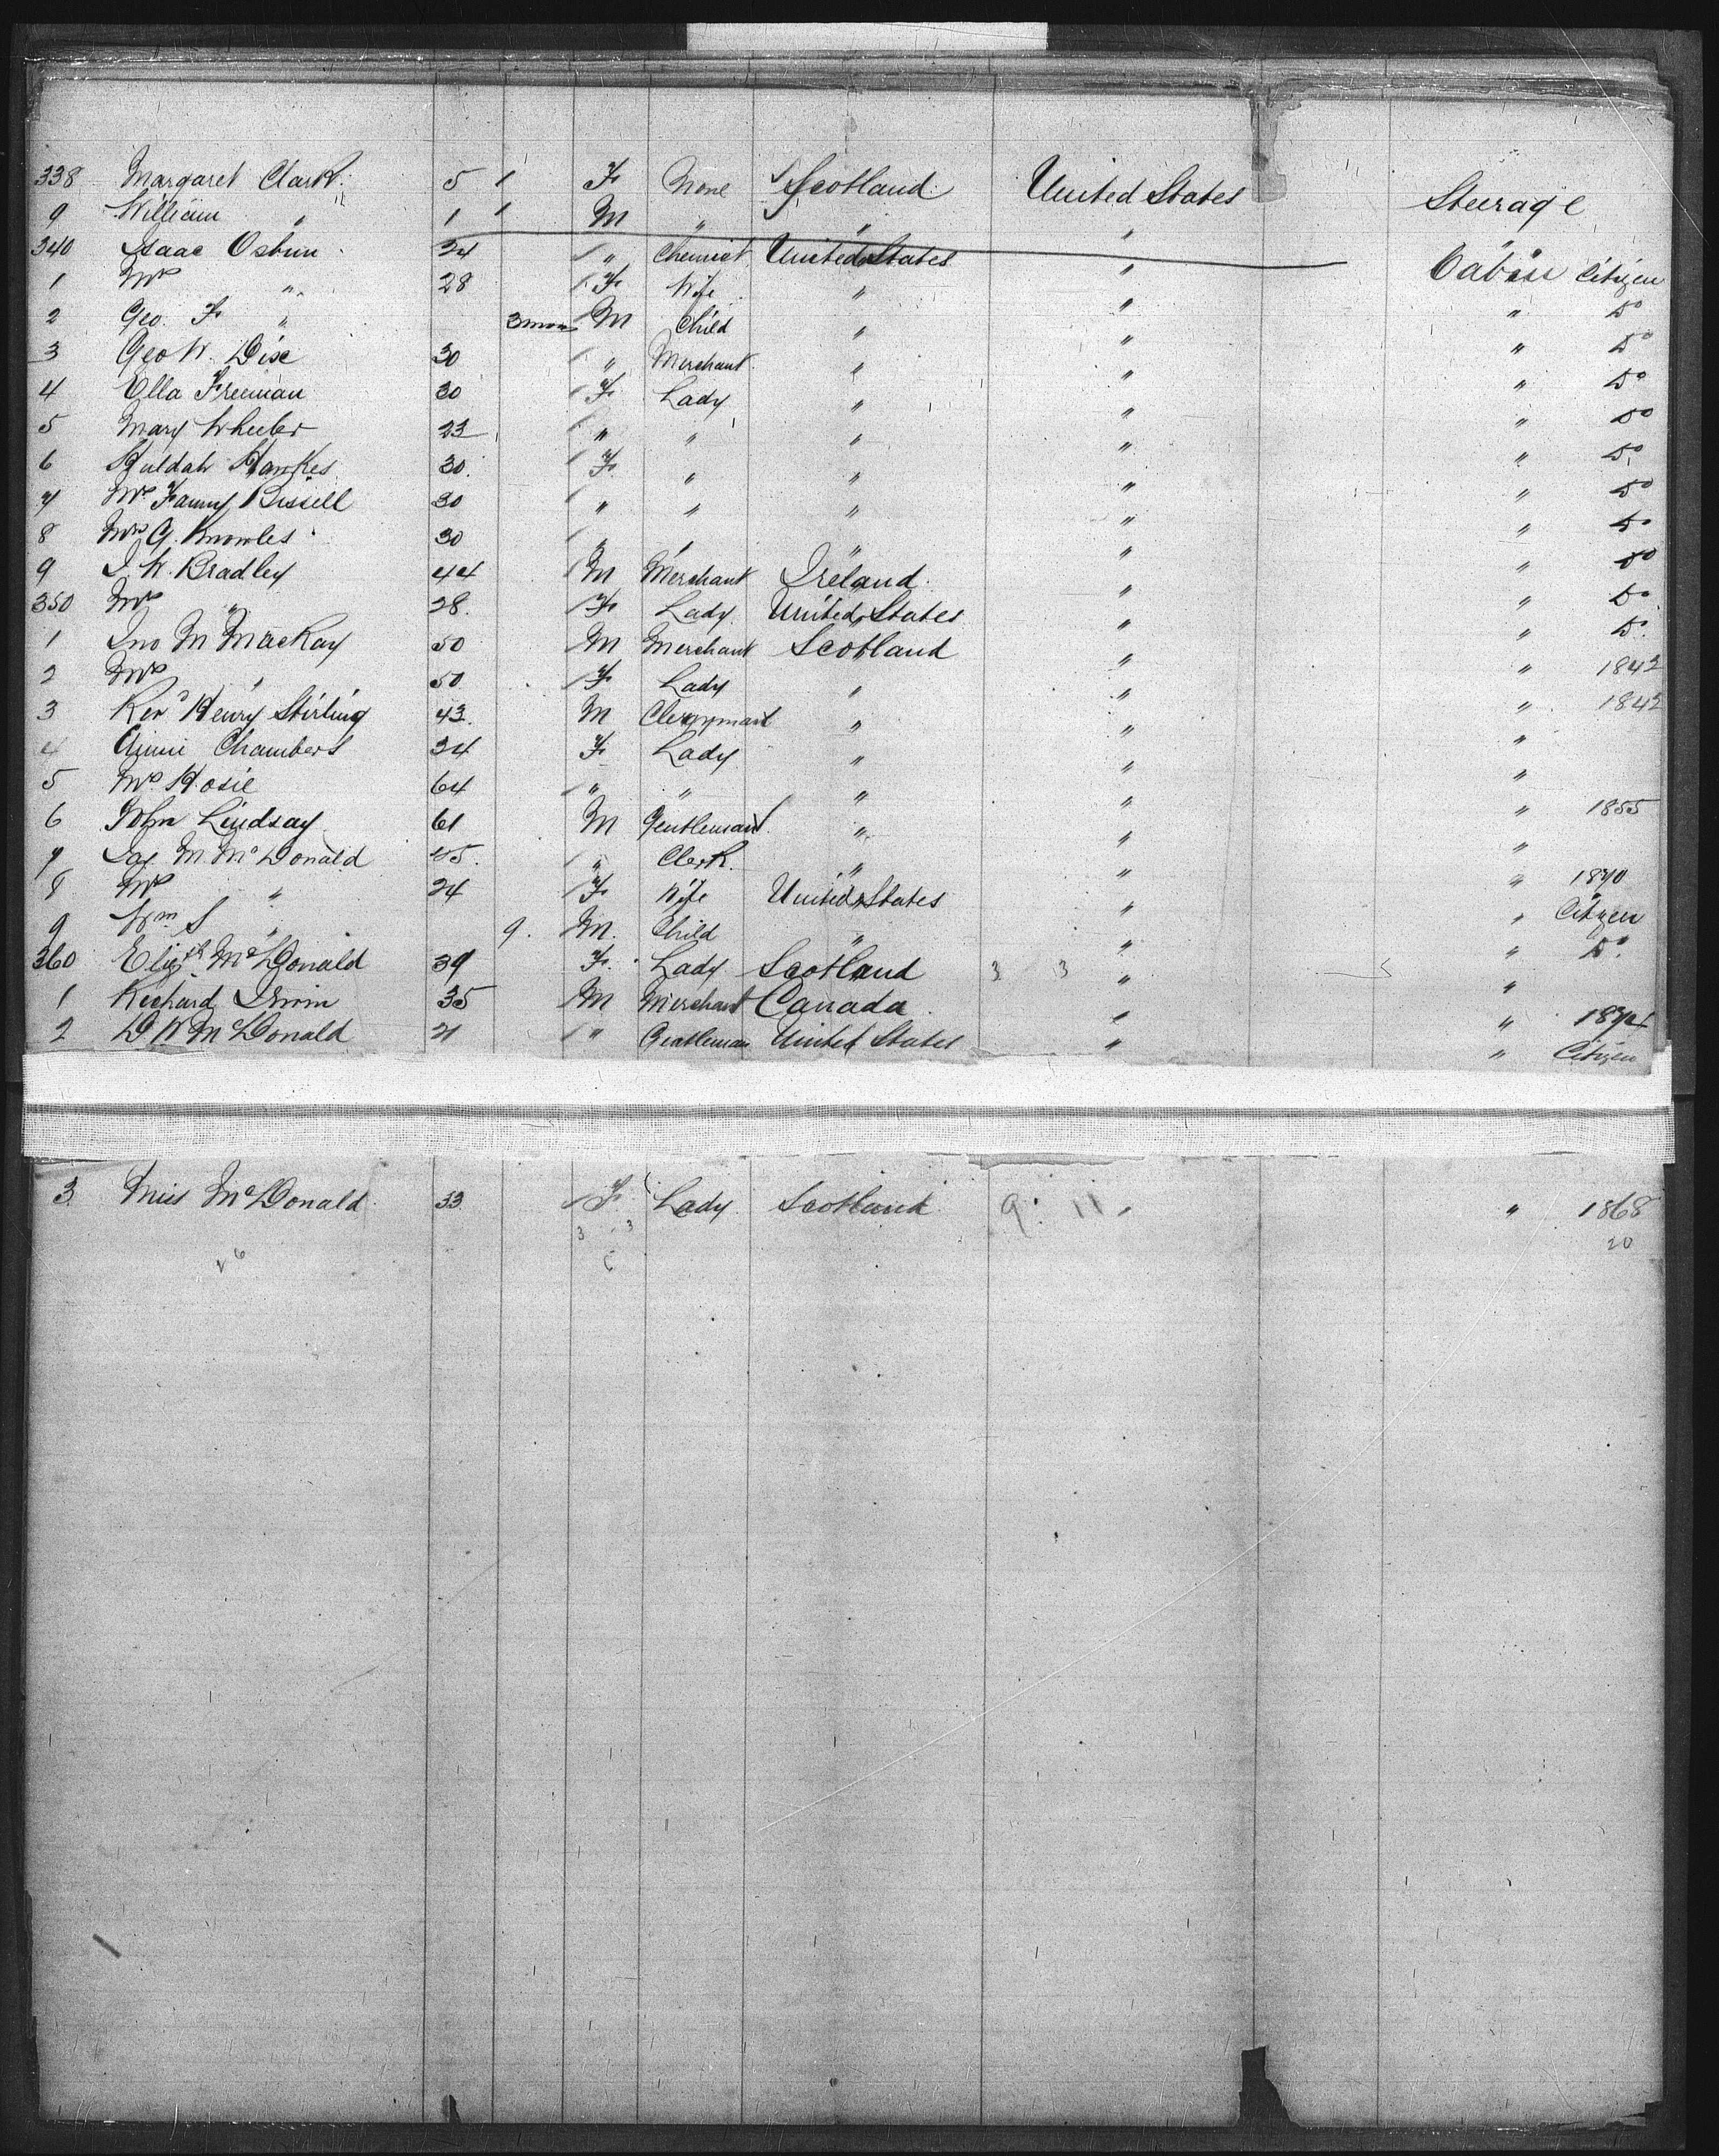 338 Margaret Clark 5 F None Scotland United States Steerage
9 William " 1 M " " " "
340 Isaac Osbun 34 " Chemist United States " Cabin Citizen
1 Mrs " 28 F Wife " " " Do
2 Geo. F " 3 mos M Child " " " Do
3 Geo W. Dix 30 " Merchant " " " Do
4 Ella Freeman 30 F Lady " " " Do
5 Mary Wheeler 23 " " " " " Do
6 Huldah Hawkes 30 F " " " " Do
7 Mrs Fanny Bissell 30 " " " " " Do
8 Mrs G. Knowles 30 " " " " " Do
9 J. W. Bradley 44 M Merchant Ireland " " Do
350 Mrs " 28 F Lady United States " " Do
1 Jno M MacKay 50 M Merchant Scotland " " 1842
2 Mrs " 50 F Lady " " " 1842
3 Revd Henry Stirling 43 M Clergyman " " "
4 Annie Chambers 34 F Lady " " "
5 Mrs Hosie 64 " " " " " 1855
6 John Lindsay 61 M Gentleman " " "
7 Jas M McDonald 45 " Clerk " " " 1870
8 Mrs " 24 F Wife United States " " Citizen
9 Wm S " 9 M Child " " " Do
360 Elizth McDonald 39 F Lady Scotland 3 3 " "
1 Richard Irwin 35 M Merchant Canada " " 1874
2 D W McDonald 21 " Gentleman United States " " Citizen
3 Miss McDonald 33 F Lady Scotland 9 11 " " 1868
3 3 20
6